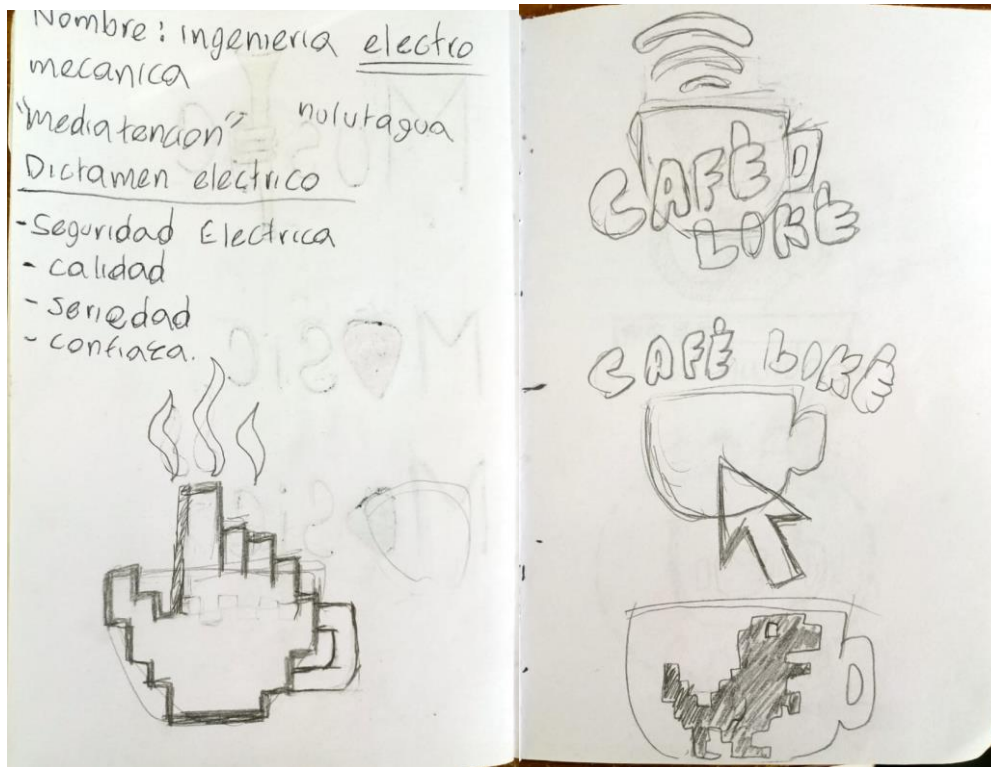 Nombre: ingenieria electro
mecanica
"mediatencion"
Dictamen electrico
- Seguridad Electrica
- calidad
- seriedad
- confiaza.
CAFÉ
LIKE
CAFÉ LIKE